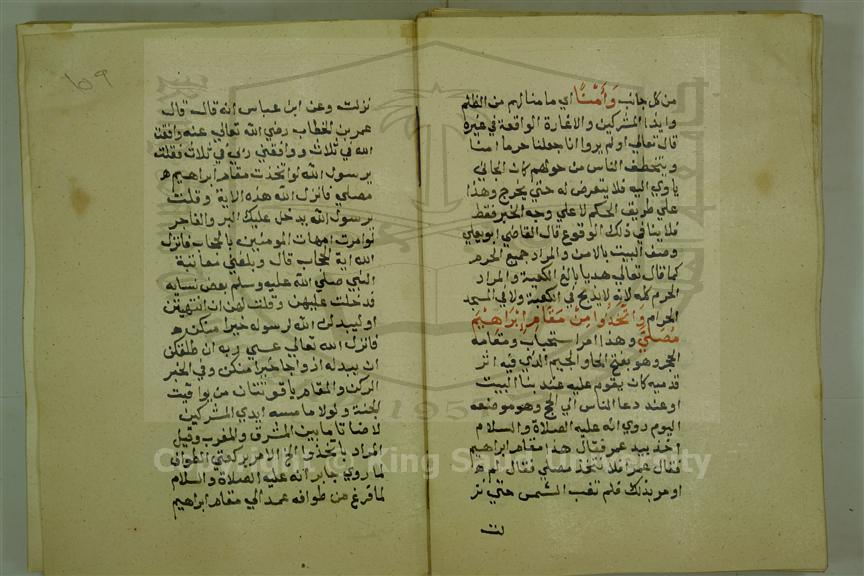 من كل جانب وَأَمْنًا اي مامنا لهم من الظلم
وايذا المشركين والاغارة الواقعة في غيره
قال تعالي اولم يروا انا جعلنا حرما امنا
ويتخطف الناس من حولهم كان الجاني
ياوي اليه فلا يتعرض له حتي يخرج وهذا
علي طريق الحكم لا علي وجه الخبر فقط
فلا ينافي ذلك الوقوع قال القاضي ابو يعلي
وصف البيت بالامن والمراد جميع الحرم
كما قال تعالي هديا بالغ الكعبة والمراد
الحرم كله لانه لا يذبح في الكعبة ولا في المسجد
الحرام وَاتَّخِذُوا مِنْ مَقَامِ إِبْرَاهِيمَ
مُصَلًّى وهذا امر استحباب ومقامه
الحجر وهو بفتح الحا والجيم الذي فيه اثر
قدميه كان يقوم عليه عند بنا البيت
او عند دعا الناس الي الحج وهو موضعه
اليوم روي انه عليه الصلاة والسلام
اخذ بيد عمر فقال هذا مقام ابراهيم
فقال عمر افلا نتخذه مصلي فقال لم
اومر بذلك فلم تغب الشمس حتي نز
لت
١٥٩
نزلت وعن ابن عباس انه قال قال
عمر بن الخطاب رضي الله تعالي عنه وافقت
الله في ثلاث ووافقني ربي في ثلاث فقلت
يرسول الله لو اتخذت مقام ابراهيم
مصلي فانزل الله هذه الاية وقلت
يرسول الله يدخل عليك البر والفاجر
لو امرت امهات المومنين بالحجاب فانزل
الله اية الحجاب قال وبلغني معاتبة
النبي صلي الله عليه وسلم بعض نسايه
فدخلت عليهن وقلت لهن ان انتهيتن
او ليبدلن الله لرسوله خيرا منكن
فانزل الله تعالي عسي ربه ان طلقكن
ان يبدله ازواجا خيرا منكن وفي الخبر
الركن والمقام ياقوتتان من يواقيت
الجنة ولولا ما مسه ايدي المشركين
لاضاتا ما بين المشرق والمغرب وقيل
المراد باتخذوا الخ الامر بركعتي الطواف
لما روي جابر انه عليه الصلاة والسلام
لما فرغ من طوافه عمد الي مقام ابراهيم
Copyright © King Saud University
1957